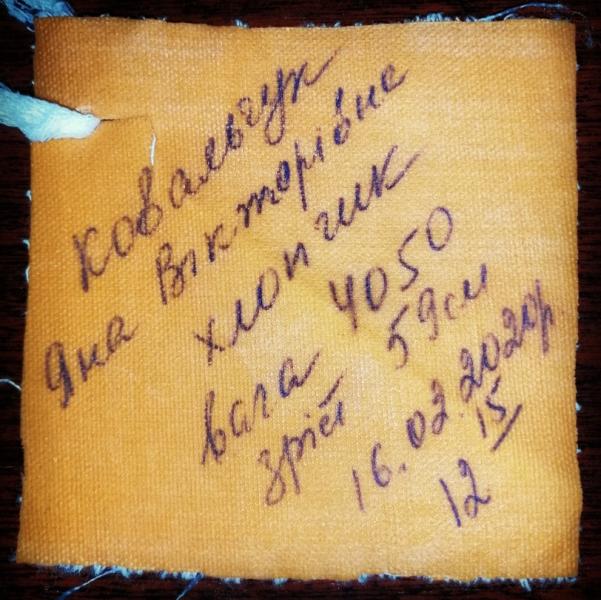 Ковальчук
Яна Вікторівна
хлопчик
вага 4050
зріст 59см
16.02.2020р.
12 15